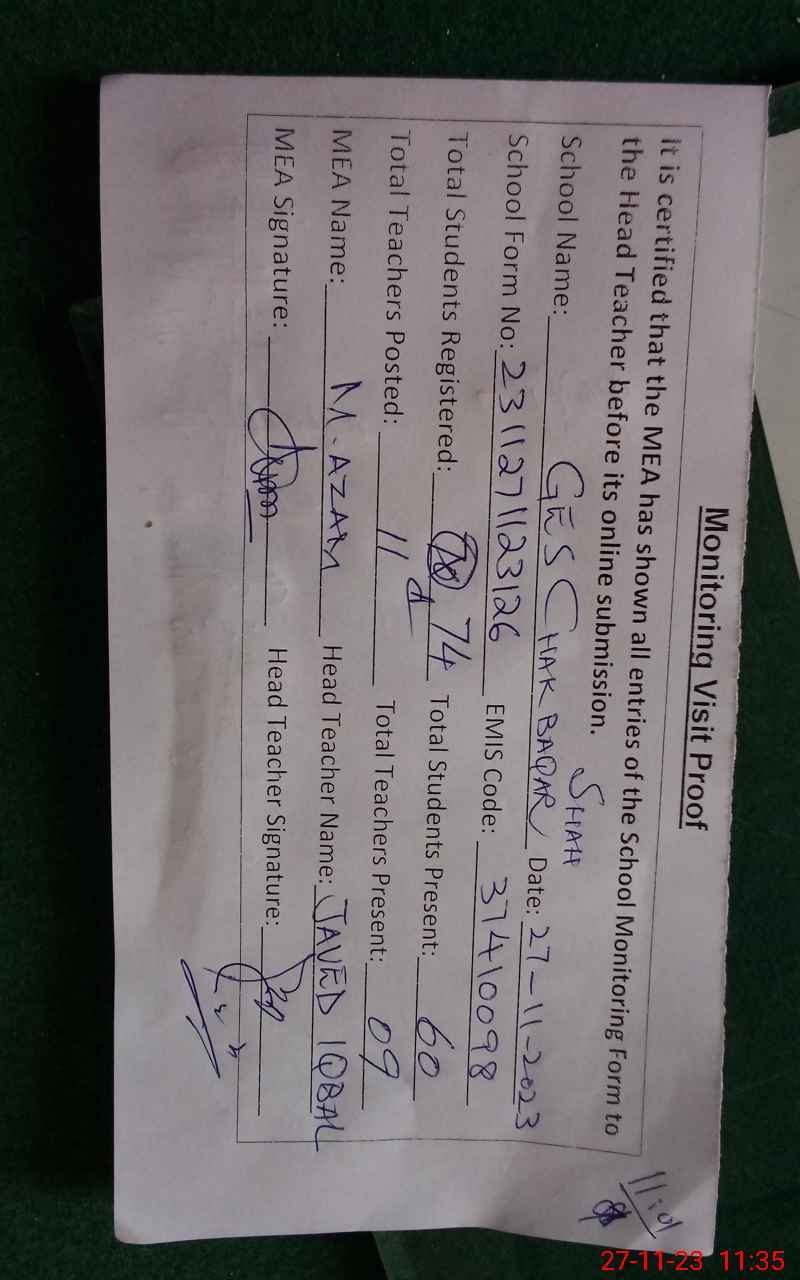 Monitoring Visit Proof
It is certified that the MEA has shown all entries of the School Monitoring Form to
the Head Teacher before its online submission.
School Name: GES CHAK BAQAR SHAH Date: 27-11-2023
School Form No: 2311271123126 EMIS Code: 37410098
Total Students Registered: 74 Total Students Present: 60
Total Teachers Posted: 11 Total Teachers Present: 09
MEA Name: M. AZAM Head Teacher Name: JAVED IQBAL
MEA Signature: Head Teacher Signature:
27-11-23 11:35